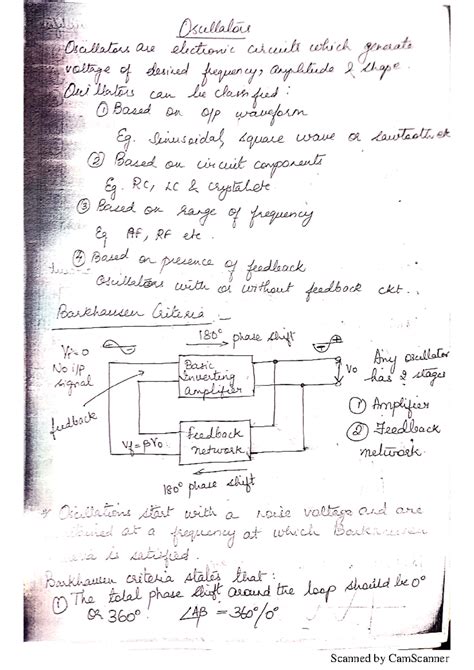 Oscillators
Oscillators are electronic circuits which generate
voltage of desired frequency, amplitude & shape.
Oscillators can be classified :
① Based on o/p waveform
Eg. Sinusoidal, square wave or sawtooth etc
② Based on circuit components
Eg. RC, LC & crystal etc
③ Based on range of frequency
Eg AF, RF etc.
④ Based on presence of feedback
Oscillators with or without feedback ckt.
Barkhausen Criteria -
180° phase shift
Vi=0
No i/p
signal
feedback
Basic
inverting
amplifier
Vo
Any oscillator
has 2 stages
① Amplifier
② Feedback
network.
Vf=βVo
Feedback
network
180° phase shift
Oscillations start with a noise voltage and are
at a frequency at which Barkhausen
is satisfied.
Barkhausen criteria states that :
① The total phase shift around the loop should be 0°
or 360°. ∠AB = 360°/0°
Scanned by CamScanner